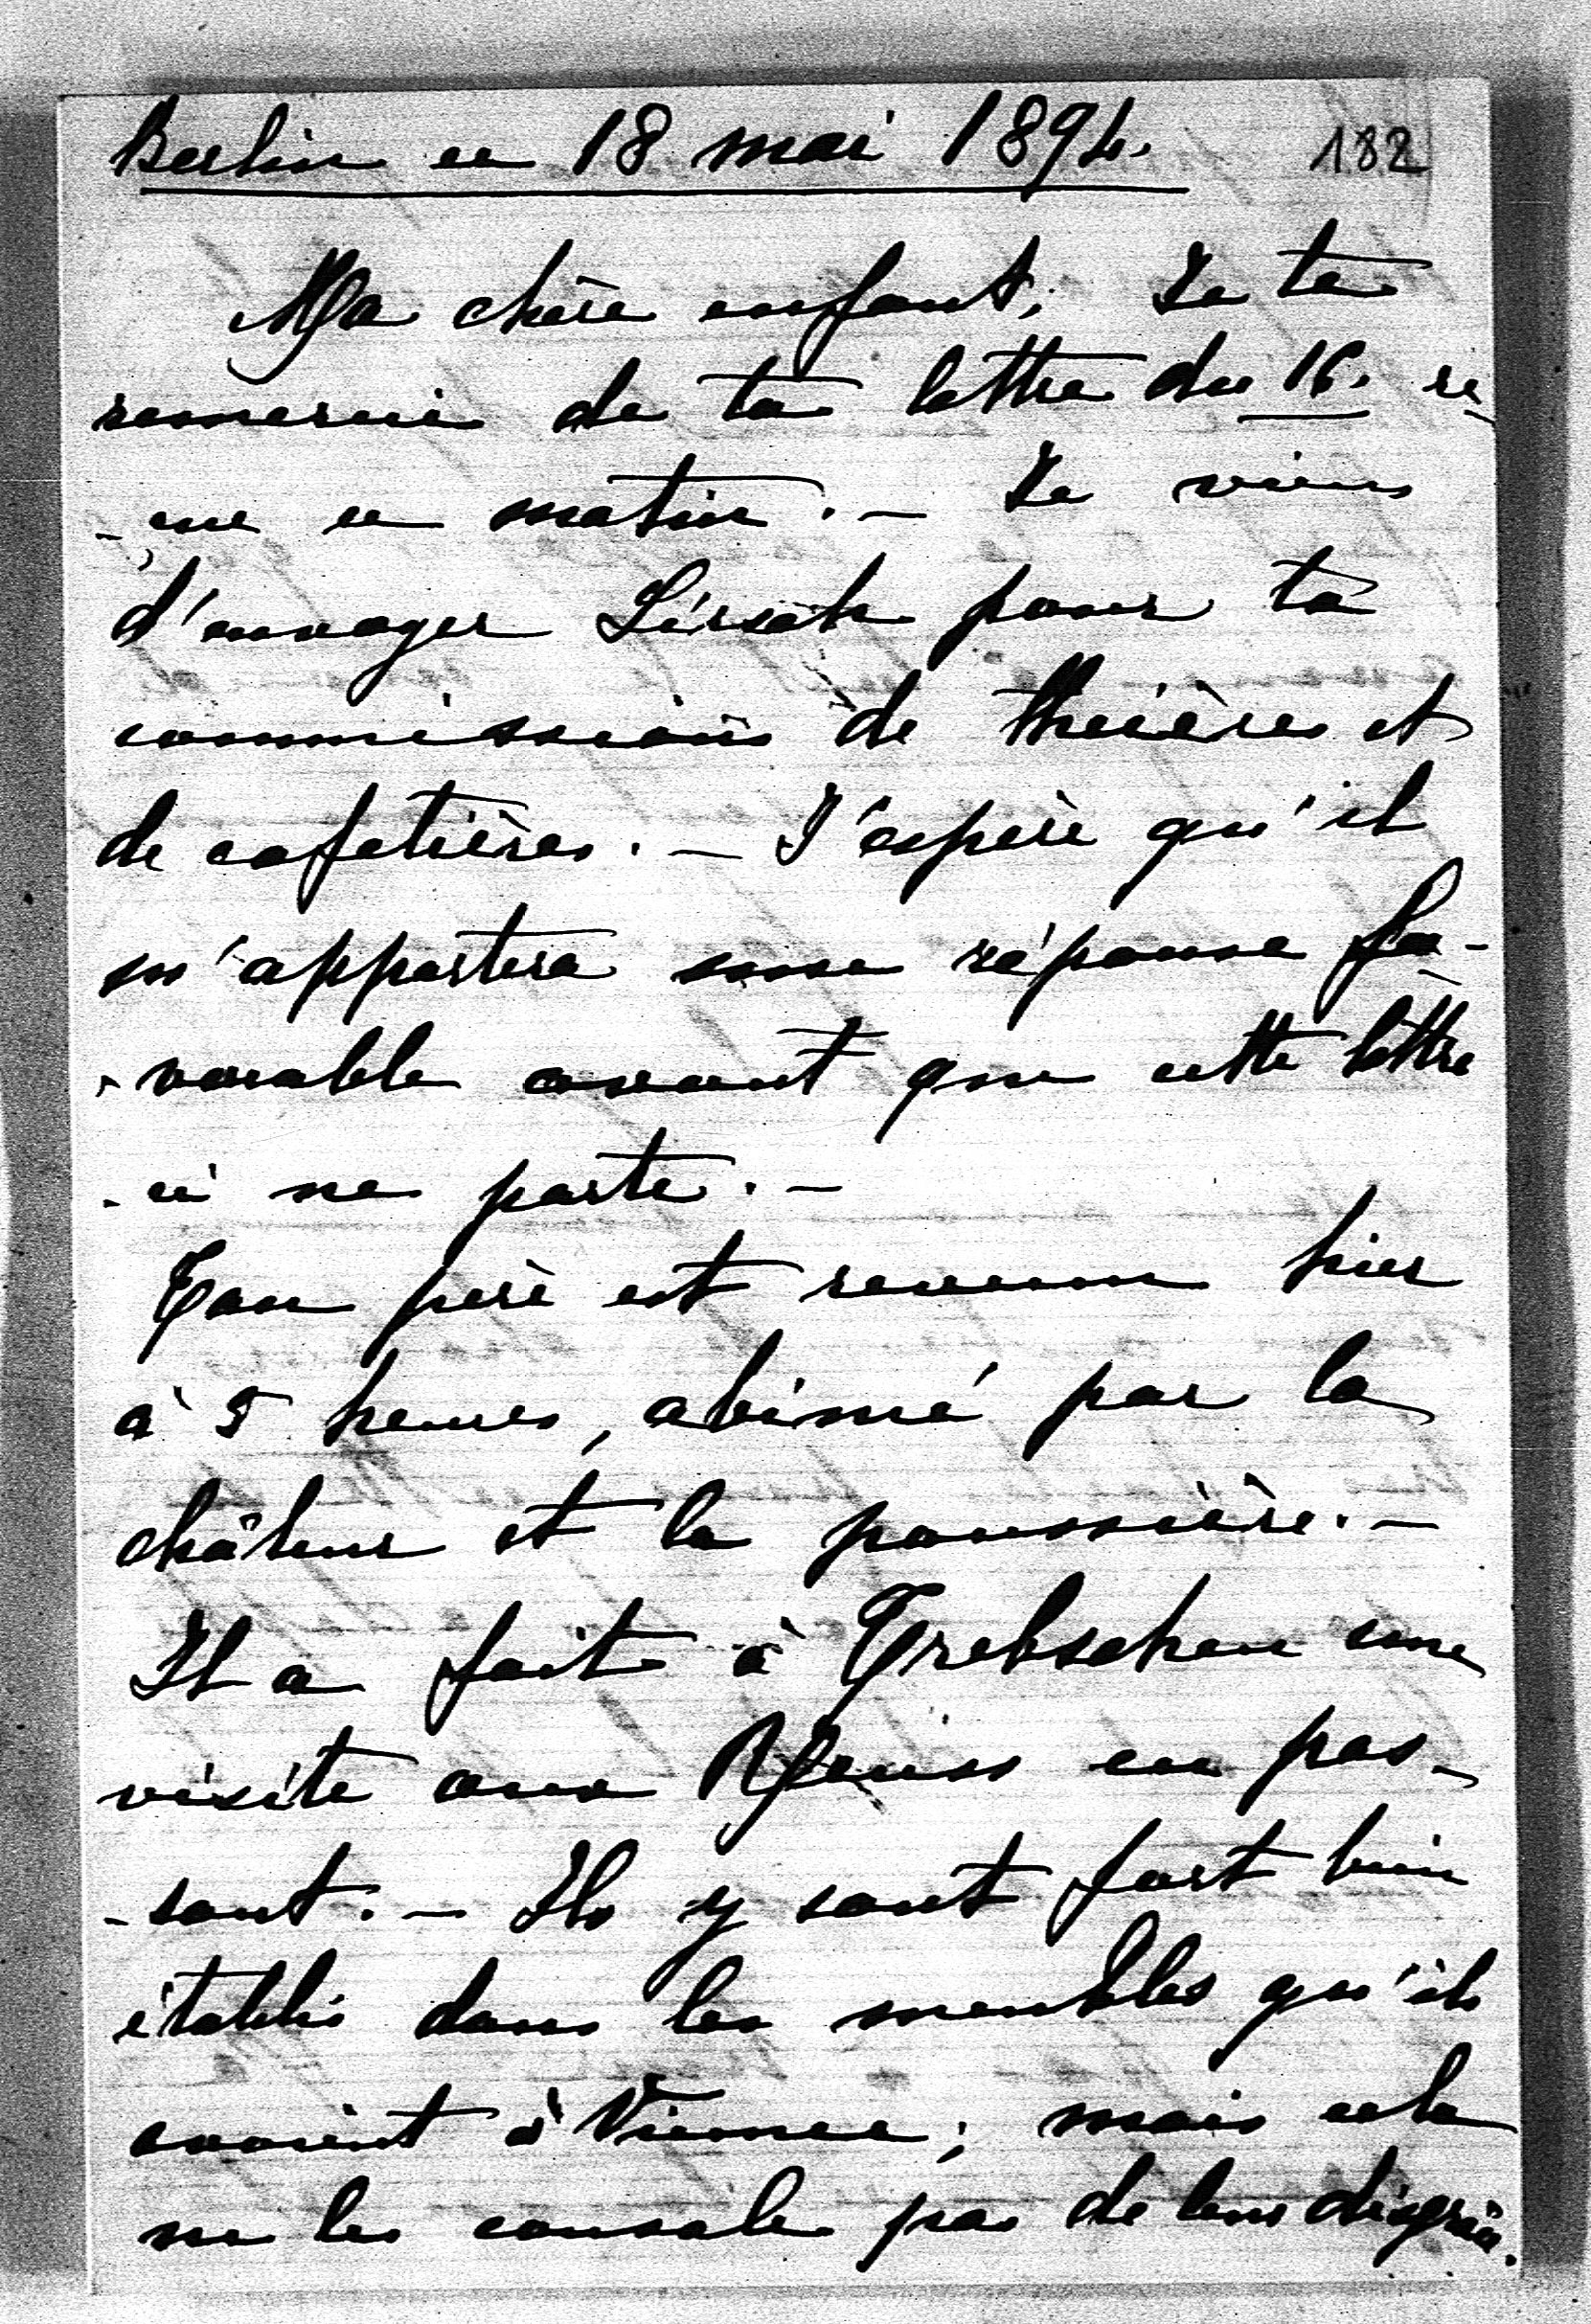 Berlin ce 18 mai 1894. 182
Ma chère enfant, Je te
remercie de ta lettre du 16. re-
-çue ce matin. – Je viens
d'envoyer Lirsch pour ta
commission de theières et
de cafetières. – J'espère qu'il
m'apportera une réponse fa-
-vorable avant que cette lettre
-ci ne parte. –
Ton père est revenu hier
à 5 heures, abimé par la
châleur et la poussière. –
Il a fait à Trebschen une
visite aux Reuss en pas-
-sant. – Ils y sont fort bien
établis dans les meubles qu'ils
avaient à Vienne; mais cela
ne les console pas de leur disgrâce.